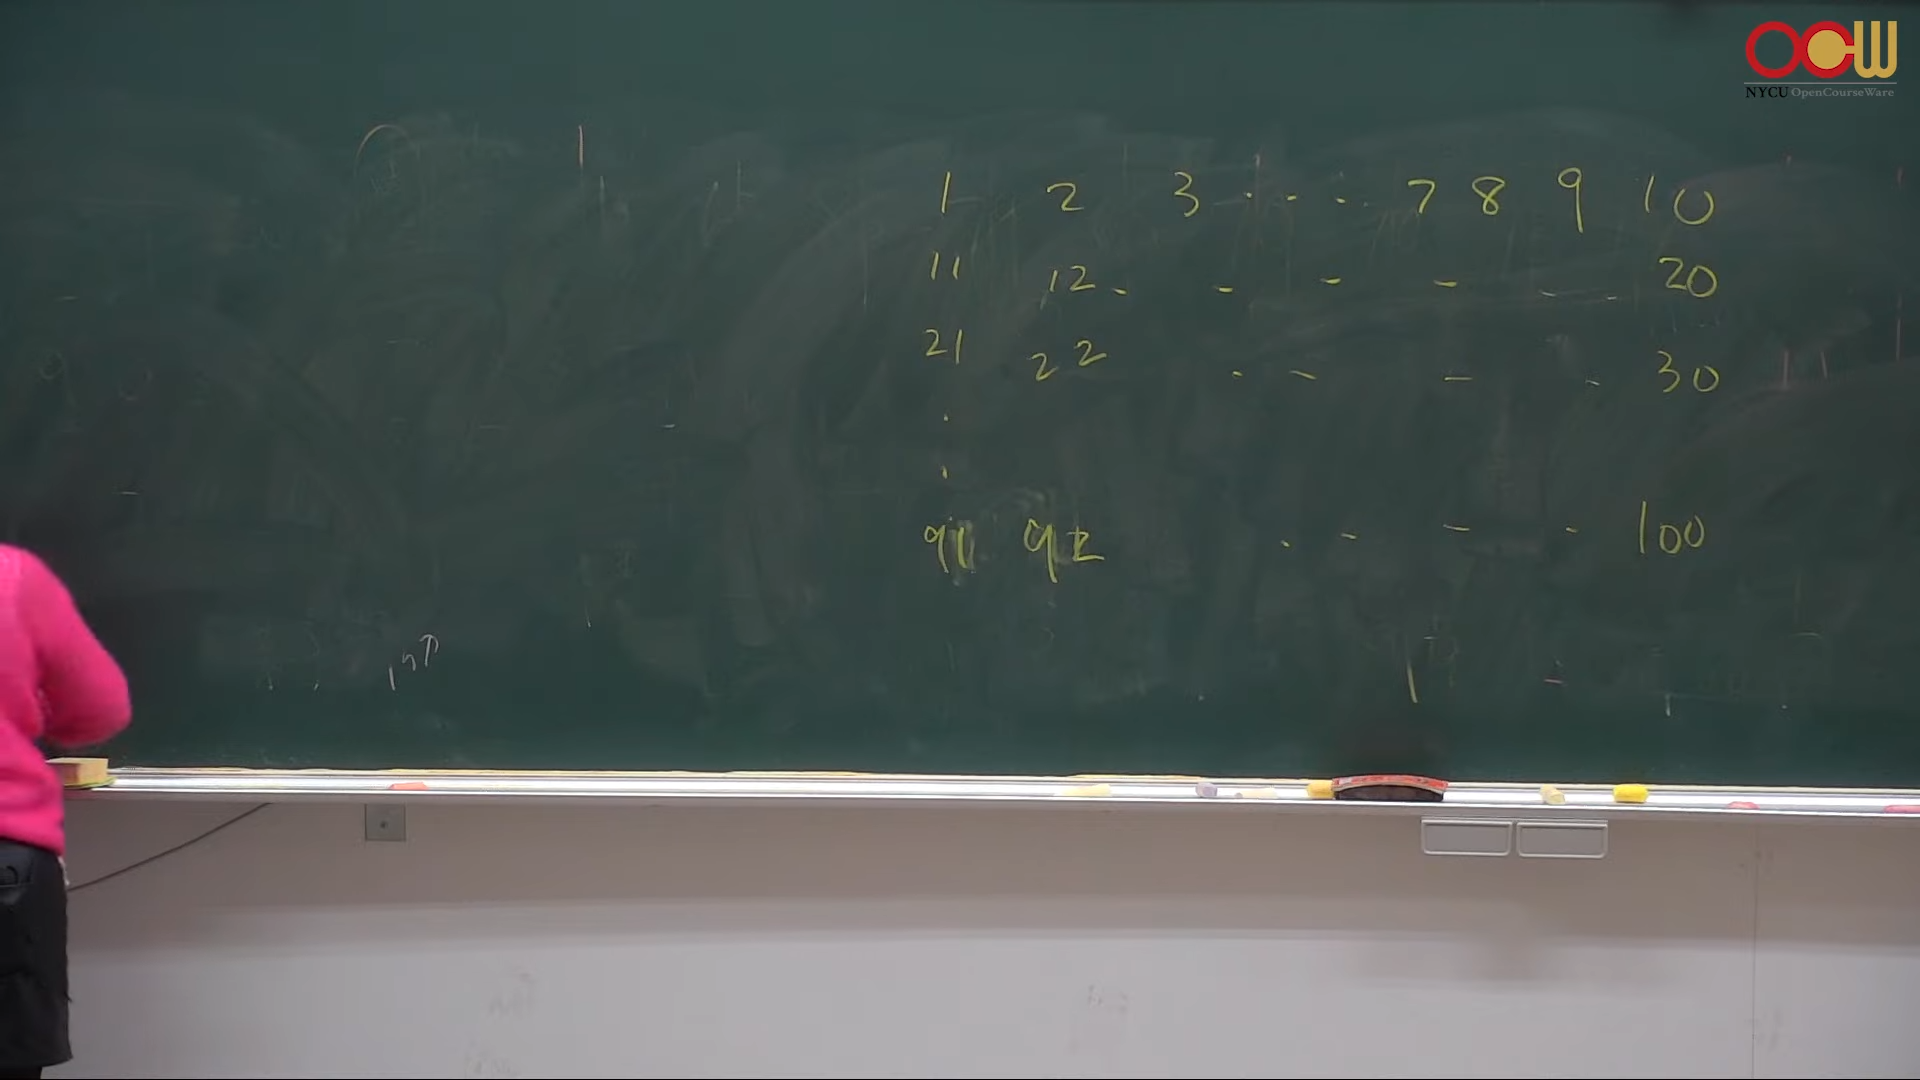 OCW
NYCU OpenCourseWare
1 2 3 . . . . 7 8 9 10
11 12 - - - - - - 20
21 22 . - - - 30
.
.
91 92 . - - - 100